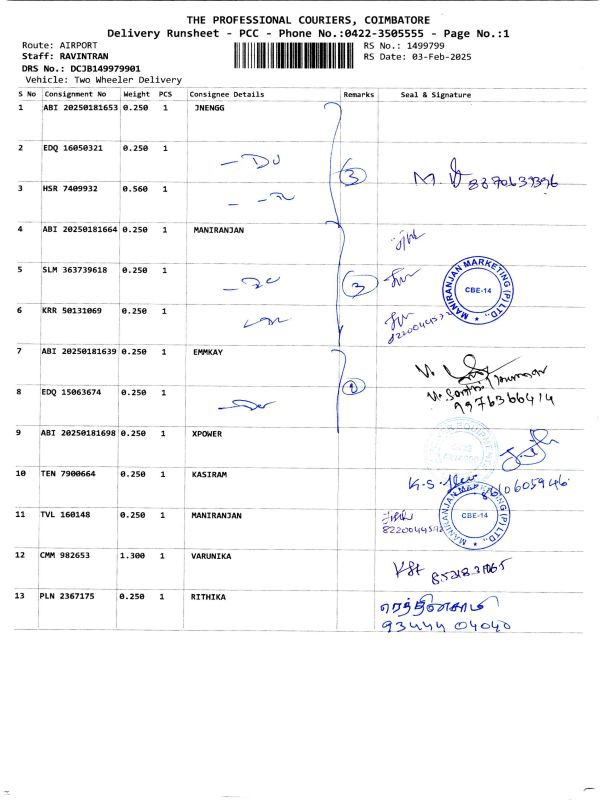 THE PROFESSIONAL COURIERS, COIMBATORE
Delivery Runsheet - PCC - Phone No.:0422-3505555 - Page No.:1
Route: AIRPORT RS No.: 1499799
Staff: RAVINTRAN RS Date: 03-Feb-2025
DRS No.: DCJB149979901
Vehicle: Two Wheeler Delivery
S No Consignment No Weight PCS Consignee Details Remarks Seal & Signature
1 ABI 20250181653 0.250 1 JNENGG
2 EDQ 16050321 0.250 1
3
3 HSR 7409932 0.560 1
4 ABI 20250181664 0.250 1 MANIRANJAN
5 SLM 363739618 0.250 1
3
MANIRANJAN MARKETING (P) LTD.,
CBE-14
6 KRR 50131069 0.250 1
7 ABI 20250181639 0.250 1 EMMKAY
8 EDQ 15063674 0.250 1
9976366414
9 ABI 20250181698 0.250 1 XPOWER
10 TEN 7900664 0.250 1 KASIRAM
K.S.
11 TVL 160148 0.250 1 MANIRANJAN
MANIRANJAN MARKETING (P) LTD.,
CBE-14
12 CMM 982653 1.300 1 VARUNIKA
13 PLN 2367175 0.250 1 RITHIKA
93444 04040